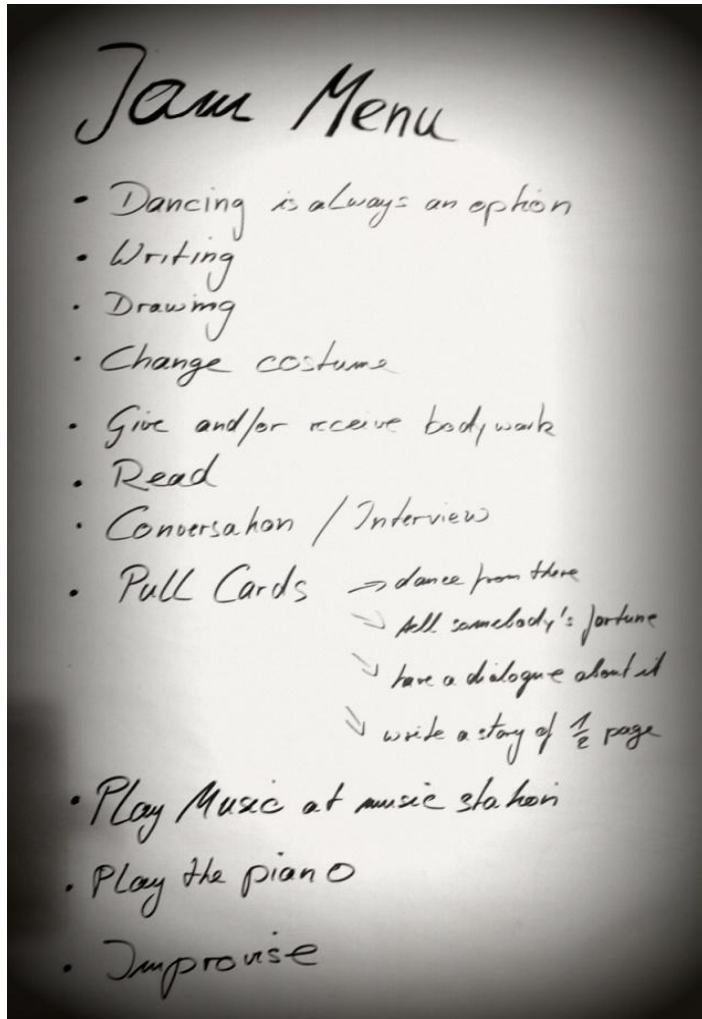 Jam Menu
• Dancing is always an option
• Writing
• Drawing
• Change costume
• Give and/or receive bodywork
• Read
• Conversation / Interview
• Pull Cards → dance from there
↘ tell somebody's fortune
↘ have a dialogue about it
↘ write a story of 1/2 page
• Play Music at music station
• Play the piano
• Improvise